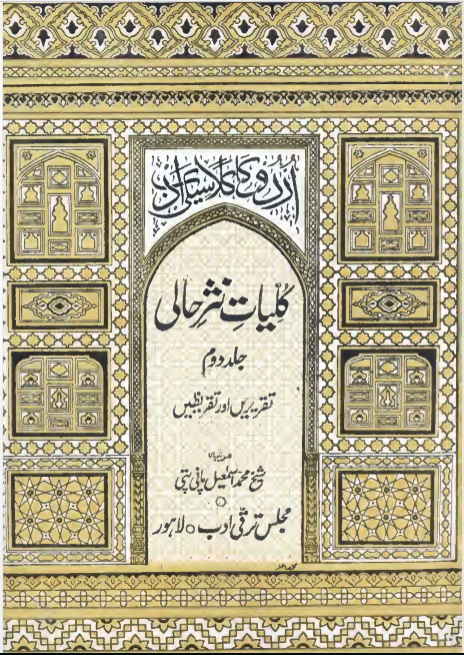 اردو کا کلاسیکی ادب
کلیاتِ نثرِ حالی
جلد دوم
تقریریں اور تقریظیں
مرتبہ
شیخ محمد اسمٰعیل پانی پتی
مجلس ترقی ادب ○ لاہور